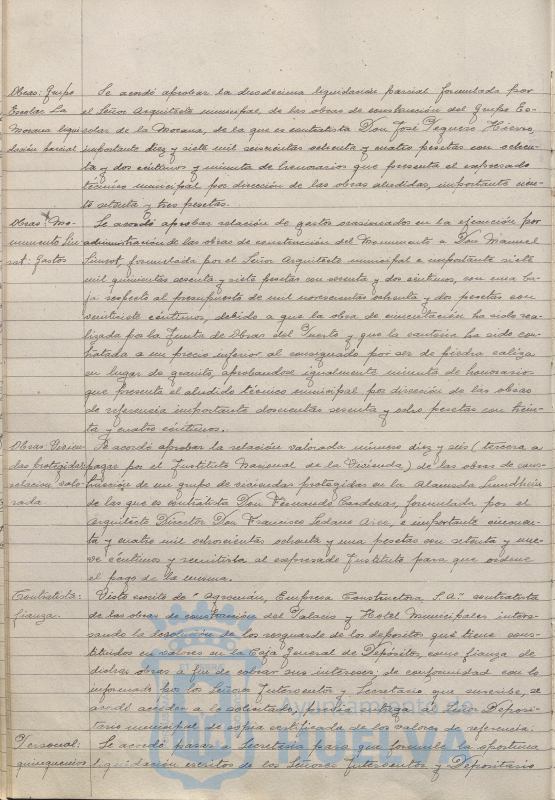 Obras: Grupo Se acordó aprobar la duodecima liquidación parcial formulada por
Escolar La el Señor Arquitecto municipal, de las obras de construcción del Grupo Es-
Morana liqui colar de la Morana, de la que es contratista Don José Teguero Hierro,
dación parcial importante diez y siete mil seiscientas ochenta y cuatro pesetas con ochen-
ta y dos céntimos y minuta de honorarios que presenta el expresado
técnico municipal por dirección de las obras aludidas, importante cien-
to setenta y tres pesetas.
Obras Mo- Se acordó aprobar relación de gastos ocasionados en la ejecución por
numento Siu administración de las obras de construcción del Monumento a Don Manuel
rot: Gastos Siurot, formulada por el Señor Arquitecto municipal e importante siete
mil quinientas sesenta y siete pesetas con sesenta y dos céntimos, con una ba-
ja respecto al presupuesto de mil novecientas ochenta y dos pesetas con
veintisiete céntimos, debido a que la obra de cimentación ha sido rea-
lizada por la Junta de Obras del Puerto y que la cantería ha sido con-
tratada a un precio inferior al consignado por ser de piedra caliza
en lugar de granito, aprobandose igualmente minuta de honorarios
que presenta el aludido técnico municipal por dirección de las obras
de referencia importante doscientas sesenta y ocho pesetas con trein-
ta y cuatro céntimos.
Obras: Vivien Se acordó aprobar la relación valorada número diez y seis (tercera a
das protegidas pagar por el Instituto Nacional de la Vivienda) de las obras de cons-
relacion valo trucción de un grupo de viviendas protegidas en la Alameda Sundheim
rada de las que es contratista Don Fernando Cardenas, formulada por el
Arquitecto Director Don Francisco Sedano Arce, e importante cincuen-
ta y cuatro mil ochocientas ochenta y una pesetas con setenta y nue-
ve céntimos y remitirla al expresado Instituto para que ordene
el pago de la misma.
Contratista: Visto escrito de "Agromán, Empresa Constructora, S.A." contratista
fianza. de las obras de construcción del Palacio y Hotel Municipales intere-
sando la devolución de los resguardos de los depositos que tiene cons-
tituidos en valores en la Caja General de Depósitos, como fianza de
dichas obras a fin de cobrar sus intereses; de conformidad con lo
informado por los Señores Interventor y Secretario que suscribe, se
acordó acceder a lo solicitado, previa entrega al Señor Deposi-
tario municipal de copia certificada de los valores de referencia.
Personal: Se acordó pasar a Secretaría para que formule la oportuna
quinquenios liquidación escritos de los Señores Interventor y Depositario
Ayuntamiento de
HUELVA